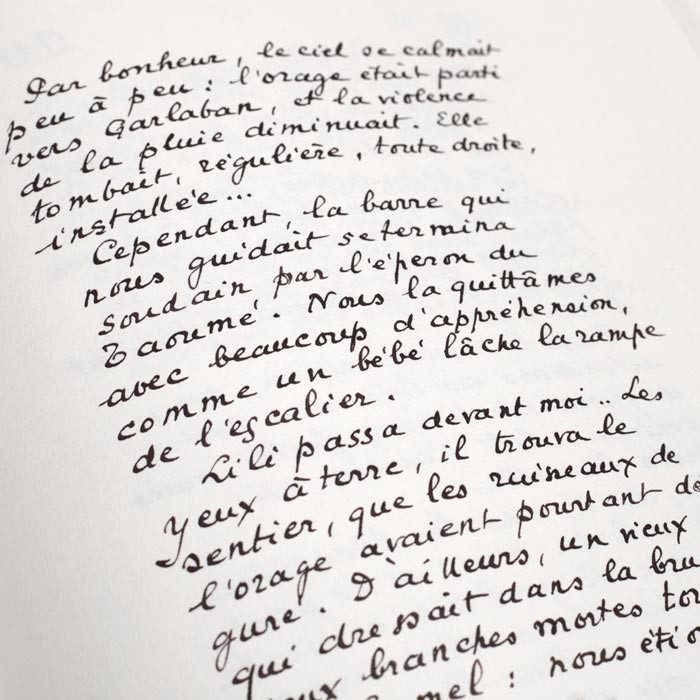 Par bonheur, le ciel se calmait
peu à peu : l'orage était parti
vers Garlaban, et la violence
de la pluie diminuait. Elle
tombait, régulière, toute droite,
installée...
Cependant, la barre qui
nous guidait se termina
soudain par l'éperon du
Taoumé. Nous la quittâmes
avec beaucoup d'appréhension,
comme un bébé lâche la rampe
de l'escalier.
Lili passa devant moi.. Les
yeux à terre, il trouva le
sentier, que les ruisseaux de
l'orage avaient pourtant dé
guré. D'ailleurs, un vieux
qui dressait dans la bru
branches mortes tor
: nous étio